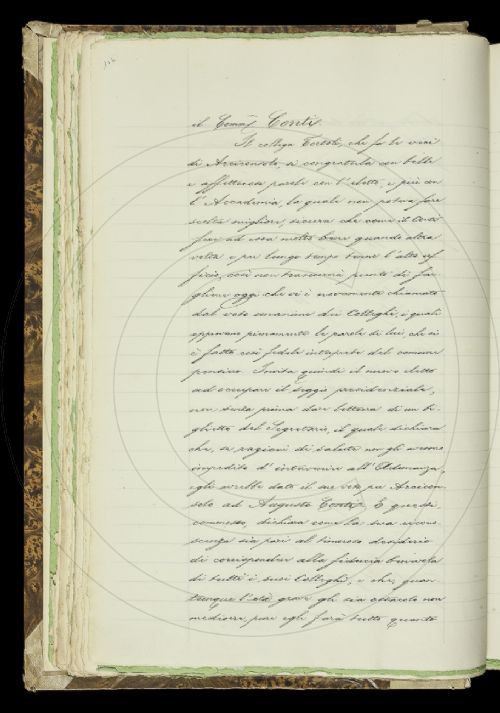 il Comm. Conti.
Il collega Tortoli, che fa le veci
di Arciconsolo, si congratula con belle
e affettuose parole con l'eletto, e più con
l'Accademia, la quale non poteva fare
scelta migliore, sicura che come il Conti
fece ad essa molto bene quando altra
volta e per lungo tempo tenne l'alto uf-
ficio, così non trascurerà punto di far-
gliene oggi che vi è nuovamente chiamato
dal voto unanime dei Colleghi, i quali
approvano pienamente le parole di lui, che si
è fatto così fedele interprete del comune
pensiero. Invita quindi il nuovo eletto
ad occupare il seggio presidenziale,
non senza prima dar lettura di un bi-
glietto del Segretario, il quale dichiara
che, se ragioni di salute non gli avessero
impedito d'intervenire all'Adunanza,
egli avrebbe dato il suo voto per Arcicon-
solo ad Augusto Conti. E questi,
commosso, dichiara come la sua ricono-
scenza sia pari al sincero desiderio
di corrispondere alla fiducia
di tutti i suoi Colleghi, e che, quan-
tunque l'età grave gli sia ostacolo non
mediocre, pure egli farà tutto quanto